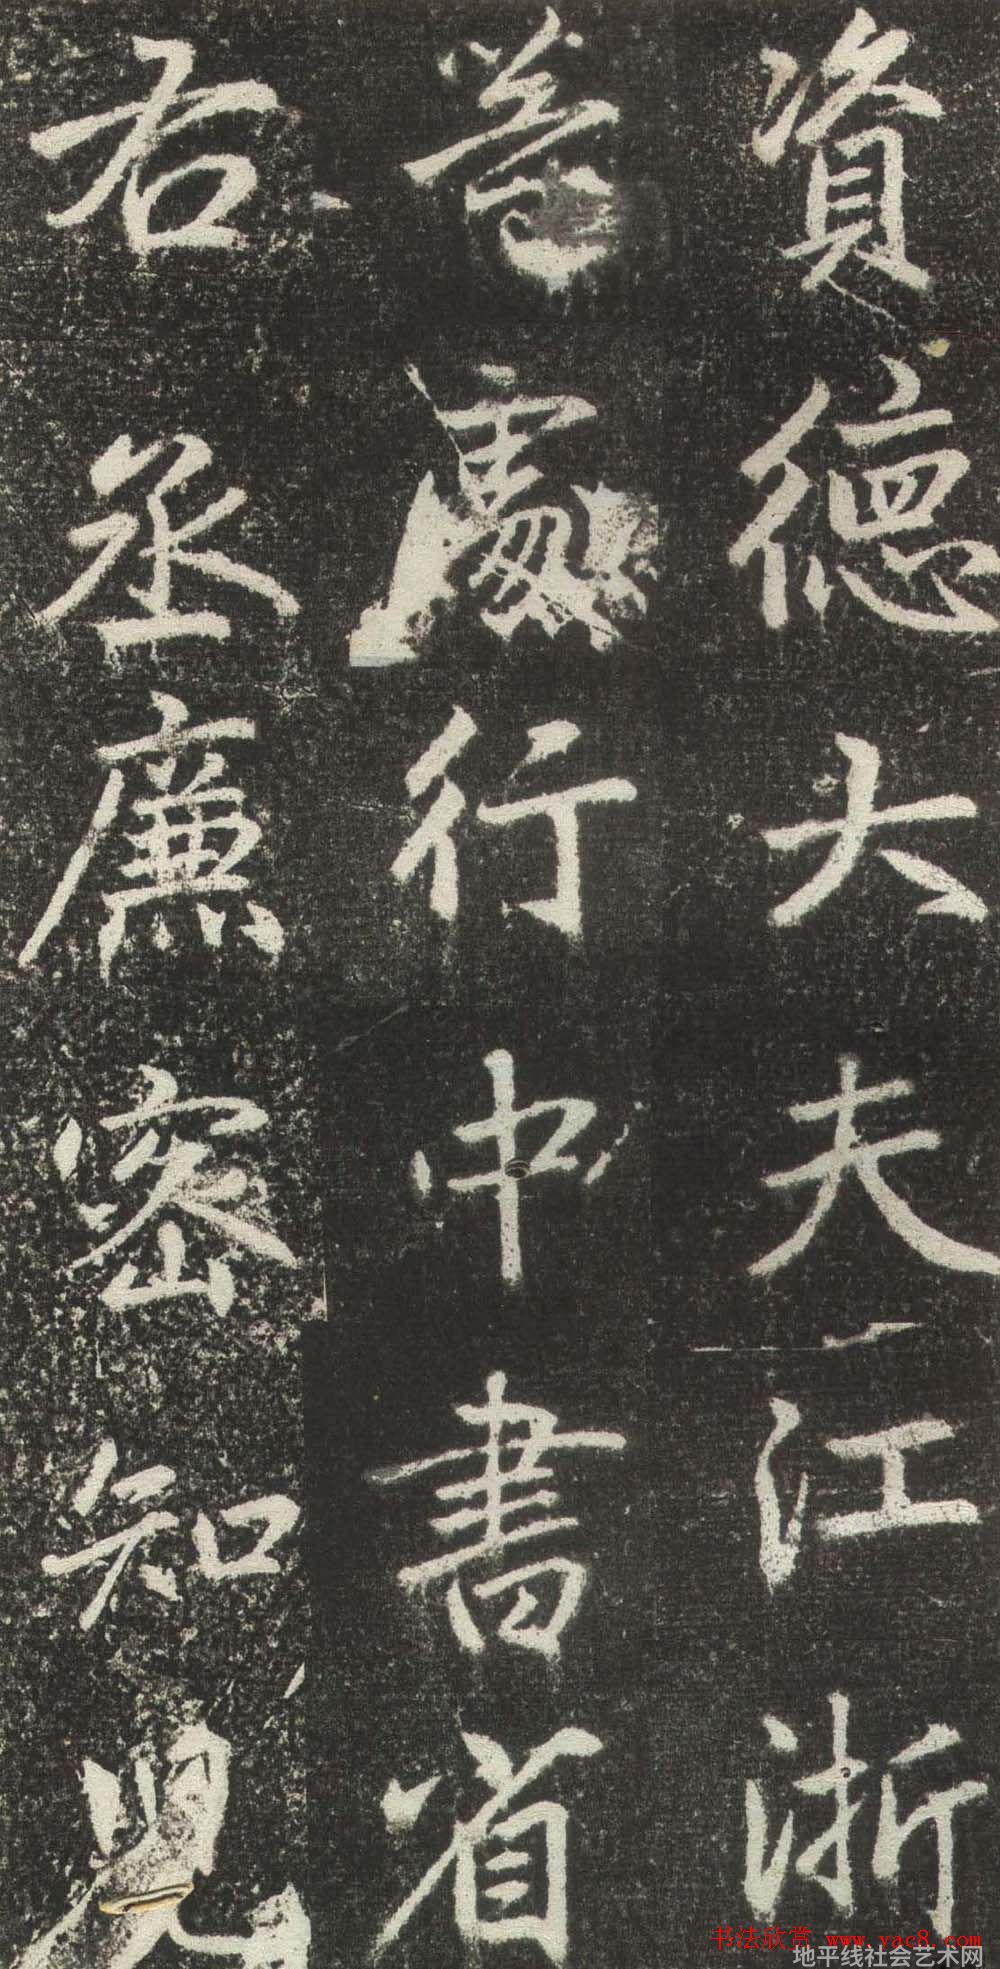 資德大夫江浙
等處行中書省
右丞廉密知兒
书法欣赏 www.yac8.com
地平线社会艺术网